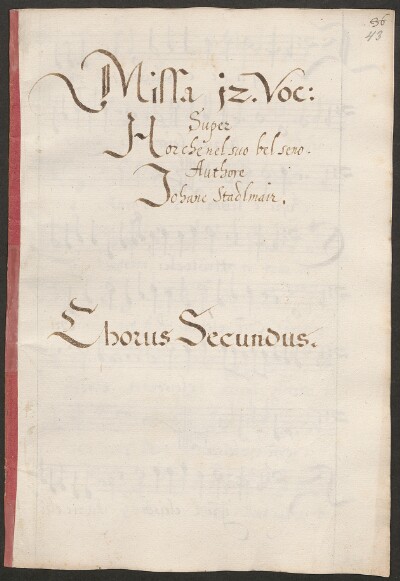 36
43
Missa jz. Voc:
Super
Hor che nel suo bel seno.
Authore
Johane Stadlmair.
Chorus Secundus.